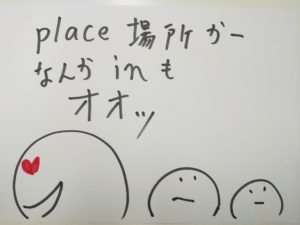 place 場所かー
なんか inも
オオッ